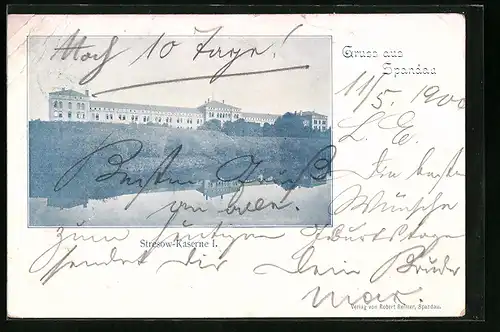 Noch 10 Tage!
Gruss aus
Spandau
11/5. 1900
L. E.
Die besten
Wünsche
zum heutigen Geburtstage
sendet Dir Dein Bruder
Max.
Besten Gruß
an alle.
Stresow-Kaserne I.
Verlag von Robert Reimer, Spandau.